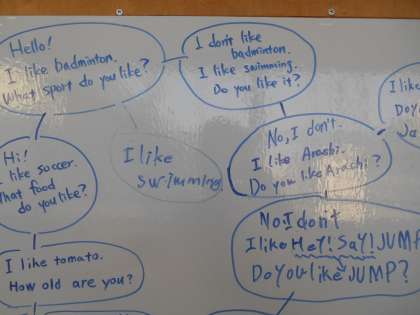 Hello!
I like badminton.
What sport do you like?
I don't like
badminton.
I like swimming.
Do you like it?
I like
Do yo
Ja
No, I don't.
I like Arashi.
Do you like Arashi?
I like
swimming.
Hi!
I like soccer.
What food
do you like?
No. I don't
I like HeY! SaY! JUMP
Do you like JUMP?
I like tomato.
How old are you?